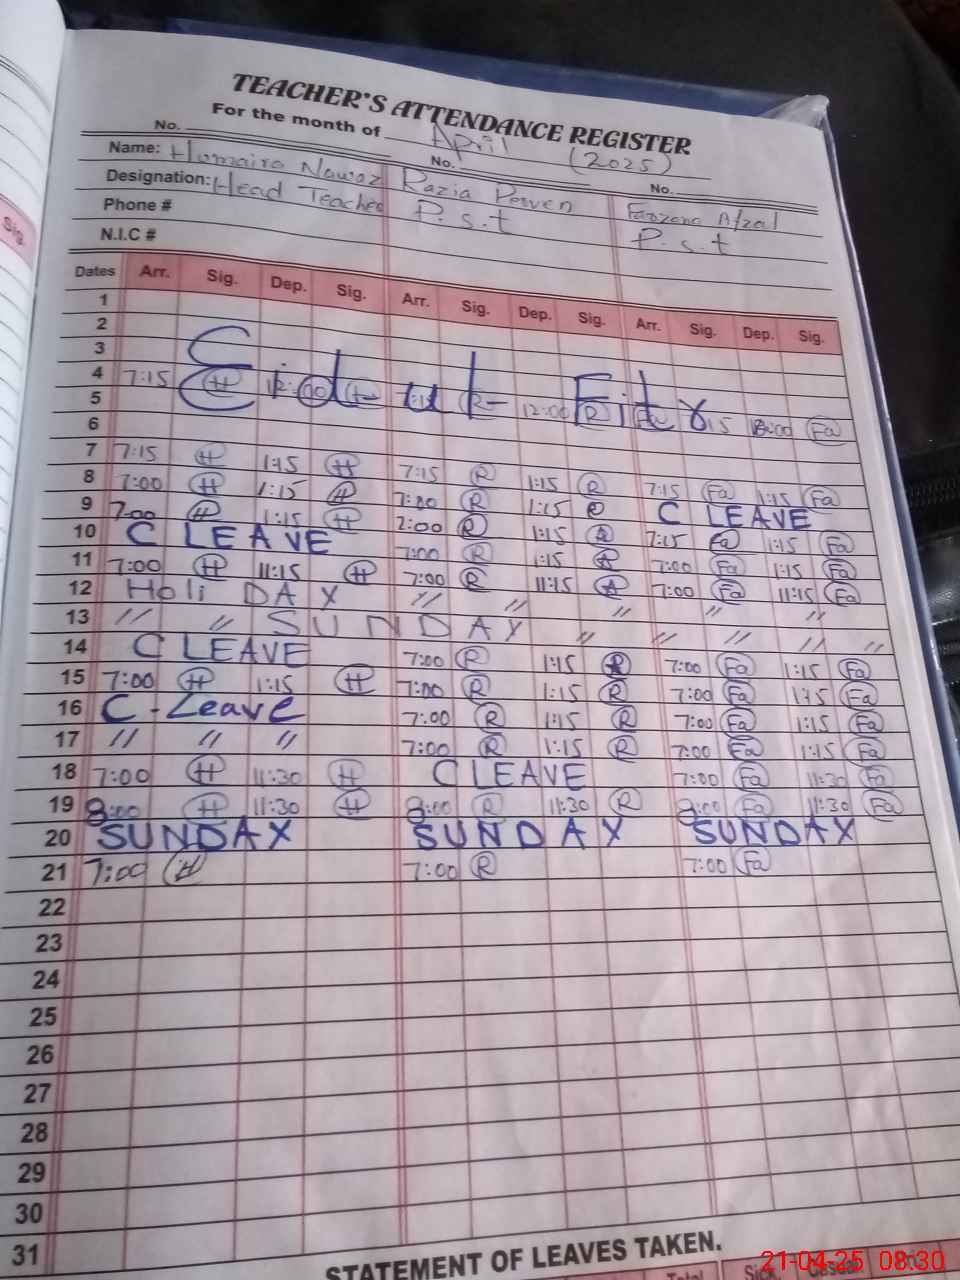 TEACHER'S ATTENDANCE REGISTER
For the month of April (2025)
No. No. No.
Name: Humaira Nawaz Razia Perven Farzana Afzal
Designation: Head Teacher P.s.t P.s.t
Phone #
N.I.C #
Dates Arr. Sig. Dep. Sig. Arr. Sig. Dep. Sig. Arr. Sig. Dep. Sig.
1
2
3
Eid-ul-Fitr
4 7:15 H 12:00 R Fa
5
6
7 7:15 H 1:15 H 7:15 R 1:15 R 7:15 Fa 1:15 Fa
8 7:00 H 1:15 H 7:00 R 1:15 R C LEAVE
9 7:00 H 1:15 H 7:00 R 1:15 R 7:15 Fa 1:15 Fa
10 C LEAVE 7:00 R 1:15 R 7:00 Fa 1:15 Fa
11 7:00 H 11:15 H 7:00 R 11:15 R 7:00 Fa 11:15 Fa
12 Holi DAY // // // // //
13 // // SUNDAY // // // // //
14 C LEAVE 7:00 R 1:15 R 7:00 Fa 1:15 Fa
15 7:00 H 1:15 H 7:00 R 1:15 R 7:00 Fa 1:15 Fa
16 C-Leave 7:00 R 1:15 R 7:00 Fa 1:15 Fa
17 // // // 7:00 R 1:15 R 7:00 Fa 1:15 Fa
18 7:00 H 11:30 H C LEAVE 7:00 Fa 11:30 Fa
19 8:00 H 11:30 H 8:00 R 11:30 R 8:00 Fa 11:30 Fa
20 SUNDAY SUNDAY SUNDAY
21 7:00 H 7:00 R 7:00 Fa
22
23
24
25
26
27
28
29
30
31
STATEMENT OF LEAVES TAKEN.
Total Sig. Casual
21-04-25 08:30
Sig.